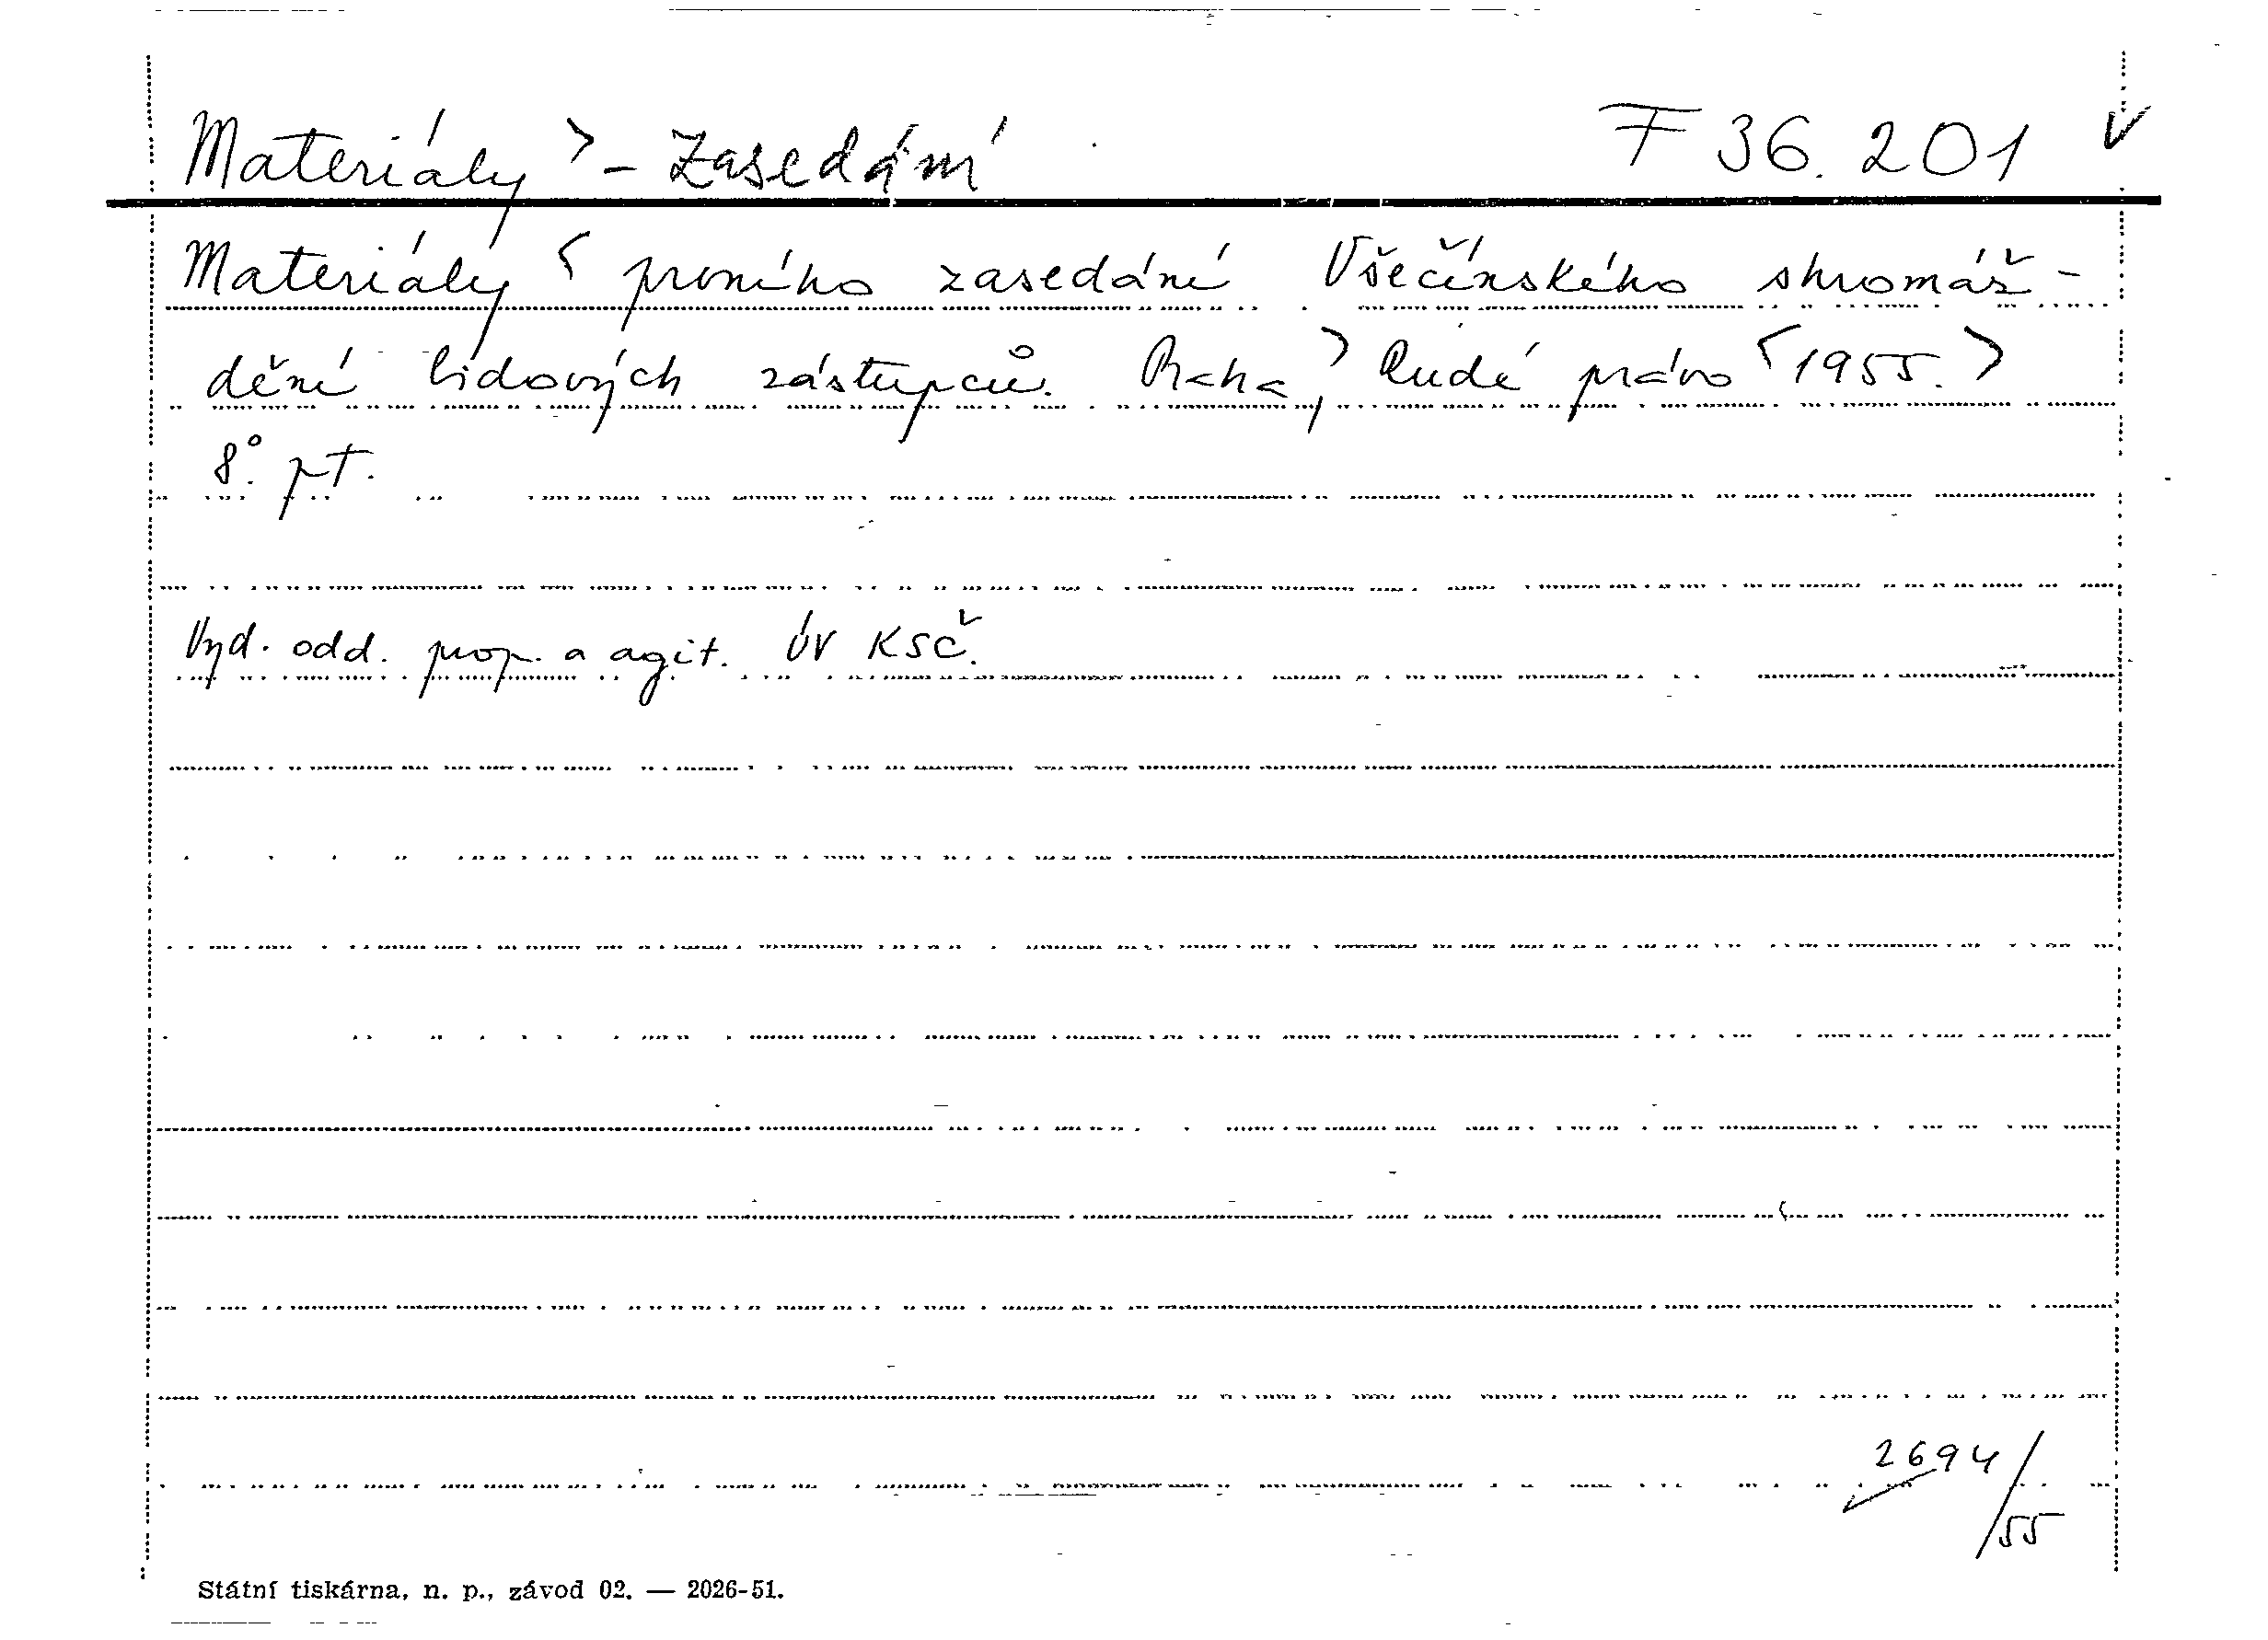 Materiály > - Zasedání F 36.201 v
Materiály < prvního zasedání Všečínského shromáž-
dění lidových zástupců. Praha, > Rudé právo < 1955. >
8°. pt.
Vyd. odd. prop. a agit. ÚV KSČ.
2694/
55
Státní tiskárna, n. p., závod 02. — 2026-51.